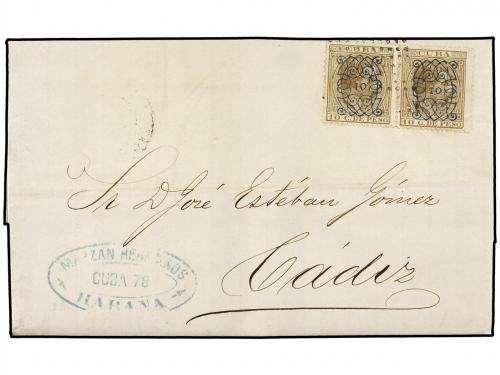 CUBA CUBA
10 10
10 C. DE PESO 10 C. DE PESO
Sr D José Estéban Gómez
Cádiz
HERMANOS
CUBA 78
HABANA